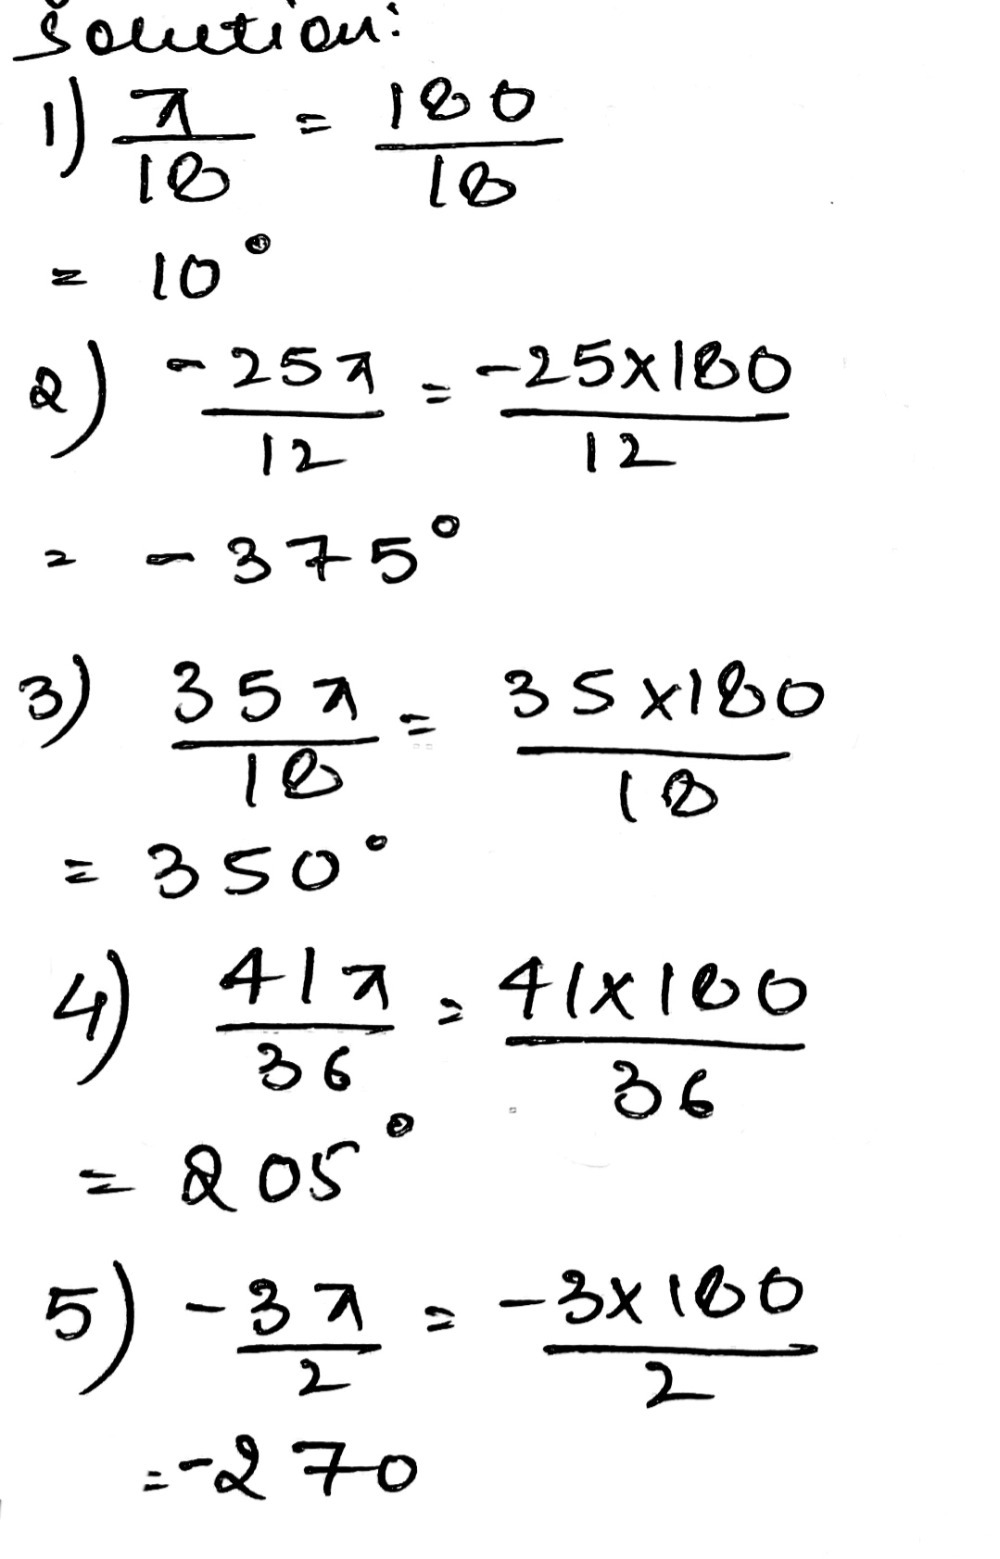 Solution:
1) π/18 = 180/18
= 10°
2) -25π/12 = -25×180/12
= -375°
3) 35π/18 = 35×180/18
= 350°
4) 41π/36 = 41×180/36
= 205°
5) -3π/2 = -3×180/2
= -270